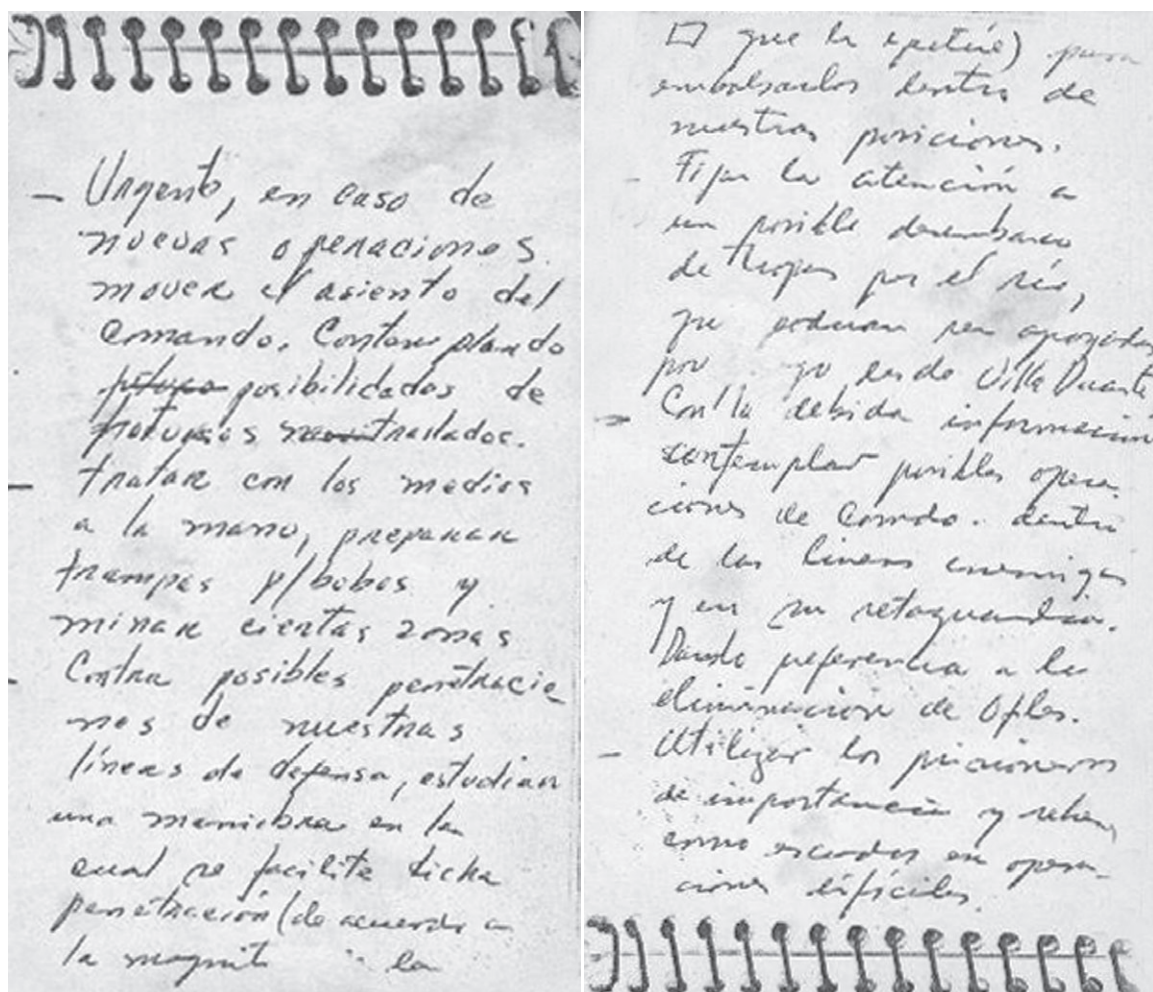 – Urgente, en caso de
nuevas operaciones
mover el asiento del
Comando. Contemplando
posibilidades de
futuros traslados.
– tratar con los medios
a la mano, preparar
trampas p/bobos y
minar ciertas zonas
– Contra posibles penetracio
nes de nuestras
líneas de defensa, estudiar
una maniobra en la
cual se facilite dicha
penetración (de acuerdo a
la magnit la
que la ) para
embolsarlos dentro de
nuestras posiciones.
– Fijar la atención a
un posible desembarco
de tropas por el río,
que podrían ser apoyadas
por desde Villa Duarte
– Con la debida información
contemplar posibles opera-
ciones de Comdo. dentro
de las líneas enemigas
y en su retaguardia.
Dando preferencia a la
eliminación de Ofles.
– Utilizar los prisioneros
de importancia y rehenes
como escudos en opera-
ciones difíciles.